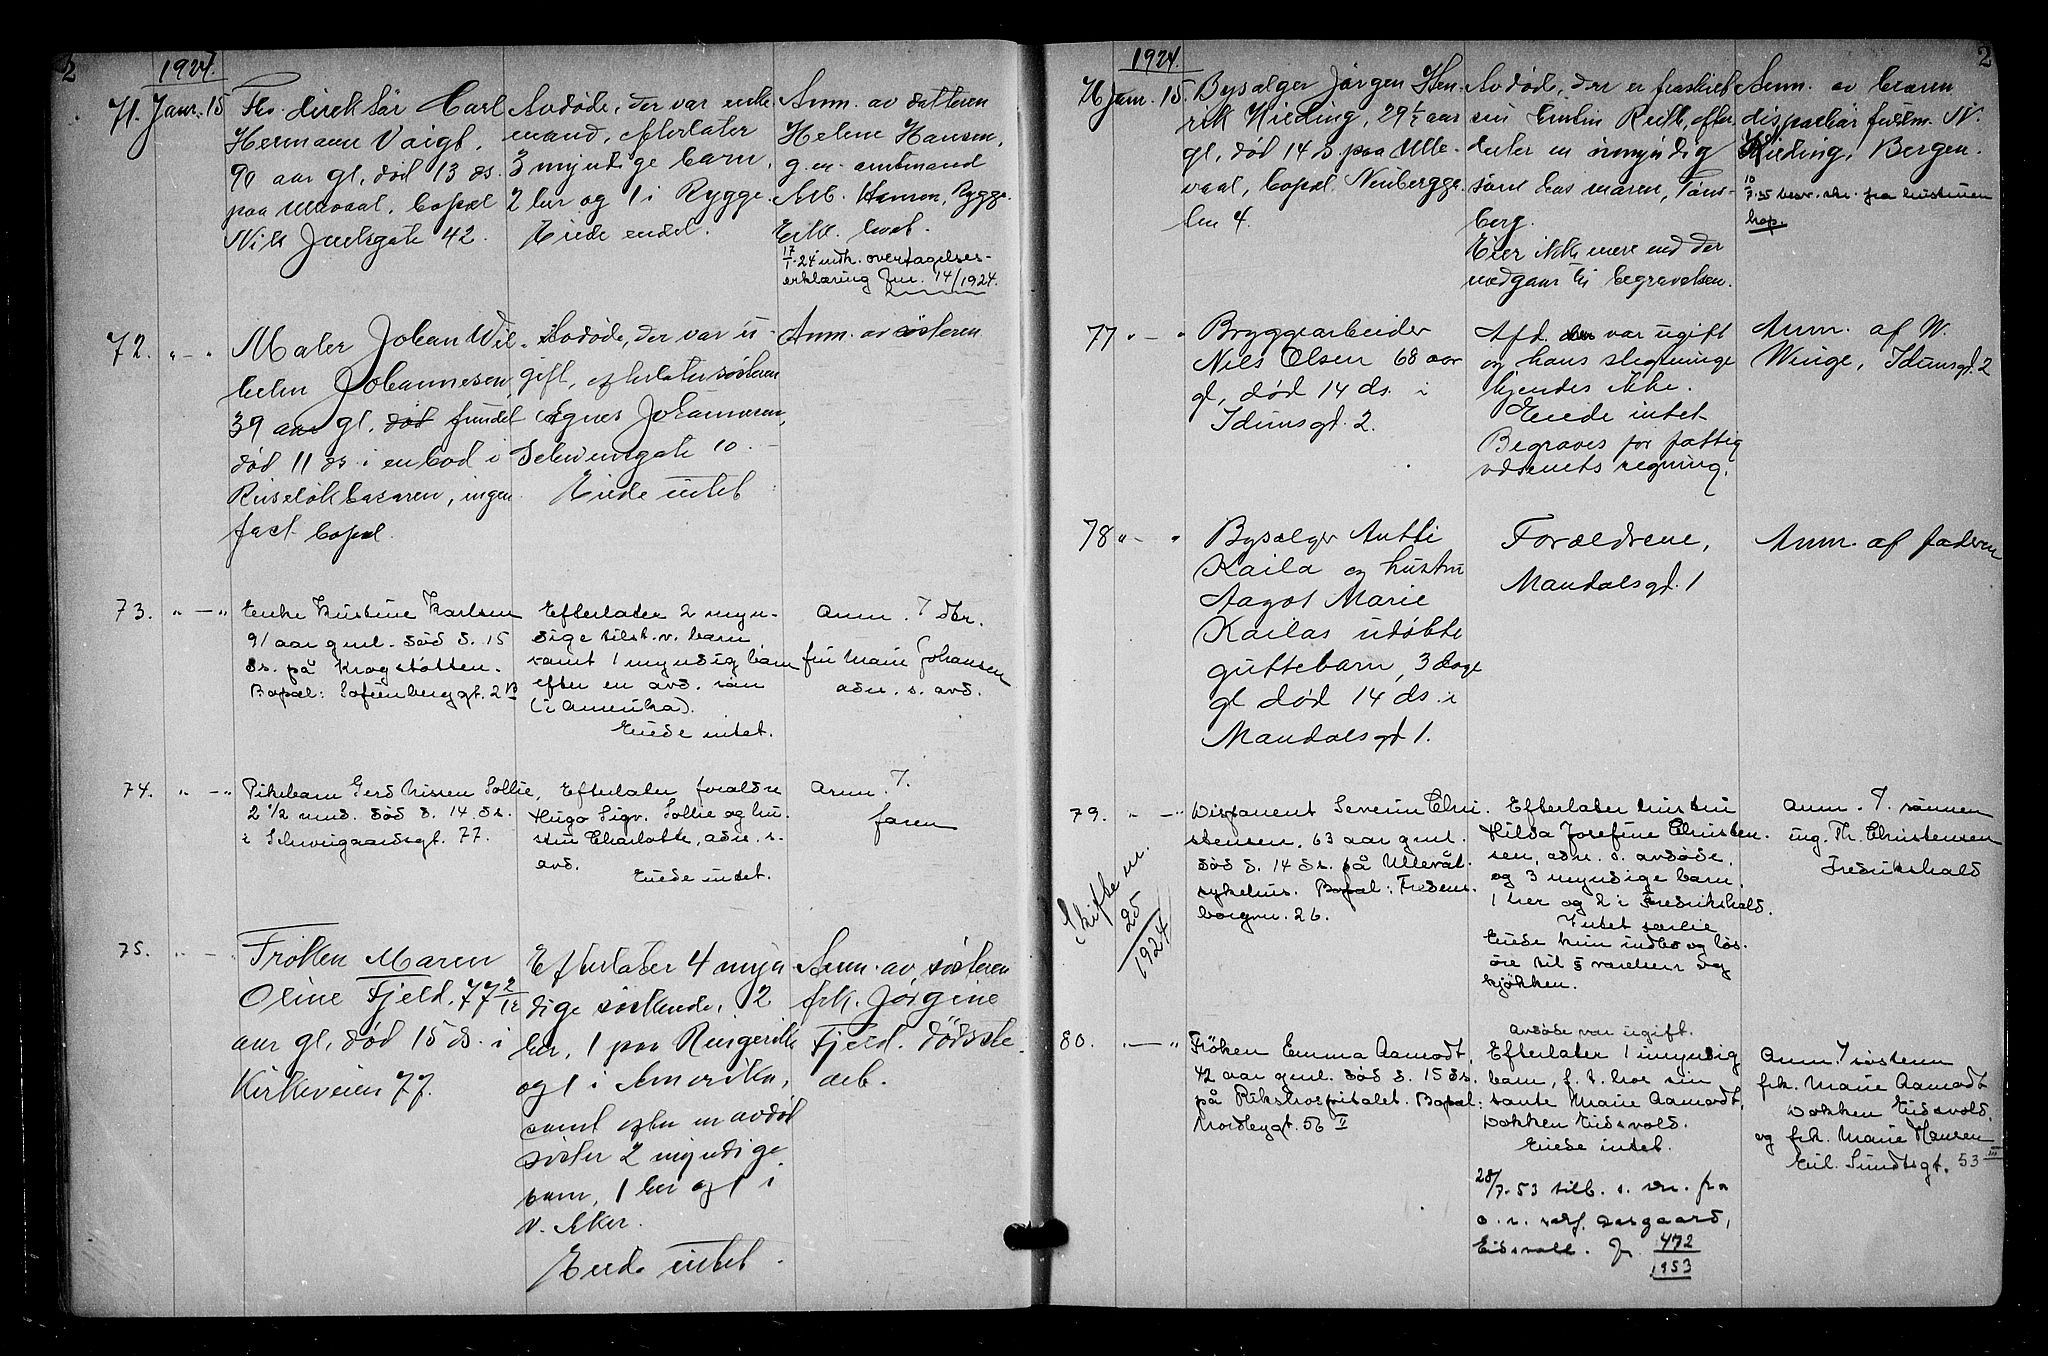 2
1924.
71. Janr. 15
Fhv. direktör Carl
Hermann Voigt,
90 aar gl, död 13 ds.
paa Ullevaal, bopæl
Nils Juelsgate 42.
Avdöde, der var enke-
mand, efterlater
3 myndige barn,
2 her og 1 i Rygge.
Eiede endel.
Anm. av datteren
Helene Hansen,
g. m. amtmand
Hansen, Rygge.
17/1-24 indk. overtagelses-
erklæring Jnr. 14/1924.
72. " - "
Maler Johan Wil-
helm Johannesen,
39 aar gl. död fundet
död 11 ds. i en bod i
Ruseløkbasaren, ingen
fast bopæl.
Avdöde, der var u-
gift, efterlater søsteren
Agnes Johannesen,
gate 10.
Eiede intet
Anm. av søsteren
73. " - "
Enke Kristine Karlsen
91 aar gml. død d. 15
ds. på Krogstøtten.
Bopæl: Sofienberggt. 2
Efterlater 2 myn-
dige tilst.v. barn
samt 1 myndig barn
efter en avd. sön
(i Amerika).
Eiede intet.
Anm. 7
fru Marie Johansen
adr. s. avd.
74. " - "
Pikebarn Gerd Nissen Sollie,
2 1/2 mnd. død d. 14. ds.
i Schweigaardsgt. 77.
Efterlater foreldre
Hugo Sigv. Sollie og hu-
stru Charlotte, adr. s.
avd.
Eiede intet.
Anm. 7.
faren
75. " - "
Frøken Maren
Oline Fjeld, 77 2/12
aar gl, død 15 ds. i
Kirkeveien 77.
Efterlater 4 myn
dige søskende, 2
her, 1 paa Ringerike
og 1 i Amerika,
samt efter en avdöd
søster 2 myndige
barn, 1 her og 1 i
V. Aker.
Eiede intet.
Anm. av søsteren
frk. Jørgine
Fjeld. dödsste-
det.
2
1924.
76 Janr. 15.
Bysælger Jörgen Hen-
rik Wieding, 29 1/2 aar
gl, död 14 ds. paa Ulle-
vaal, bopæl Neubergge-
ten 4.
Avdöd, der er fraskilt
sin hustru Ruth, efter-
later en umyndig
sönn hos moren, Töns-
berg.
Eier ikke mere end der
medgaar til begravelsen.
Anm. av broren
disponent fuldm. N.
Wieding, Bergen.
skr. fra hustruen
77 " - "
Bryggearbeider
Nils Olsen 68 aar
gl, død 14 ds. i
Idunsgd. 2.
Afd. var ugift
og hans slegtninge
kjendes ikke.
Eiede intet
Begraves for fattig
væsenets regning.
Anm. af W.
Winge, Idunsgd. 2
78 " - "
Bysælger Antti
Kaila og hustru
Aagot Marie
Kailas udøbte
guttebarn, 3 dage
gl død 14 ds. i
Mandalsgd 1.
Forældrene,
Mandalsgd. 1
Anm. af faderen
79. " - "
Skifte nr.
25
1924
Disponent Severin Chri-
stensen, 63 aar gml.
død d. 14 ds. på Ullevål
sykehus. Bopæl: Fredens-
borgvn. 26.
Efterlater hustru
Hilda Josefine Christen-
sen, adr. s. avdøde,
og 3 myndige barn,
1 her og 2 i Fredrikshald.
Intet særeie
Eiede kun indbo og løs-
øre til 3 værelser og
kjøkken.
Anm. 7. sönnen
ing. Th. Christensen
Fredrikshald
80. " - "
Frøken Emma Aamodt,
42 aar gml. død d. 15 ds.
på Rikshospitalet. Bopæl:
Nordbygt. 56 II
Avdøde var ugift.
Efterlater 1 umyndig
barn, f. t. hos sin
tante Marie Aamodt,
Dokken Eidsvold.
Eiede intet.
28/7.53 tilb. s. skr. fra
o. r. sakf. Aasgaard,
Eidsvoll. Jr. 472
1953
Anm. 7 søsteren
frk. Marie Aamodt
Dokken Eidsvold.
og frk. Marie Hansen
Eil. Sundtsgt. 53 III